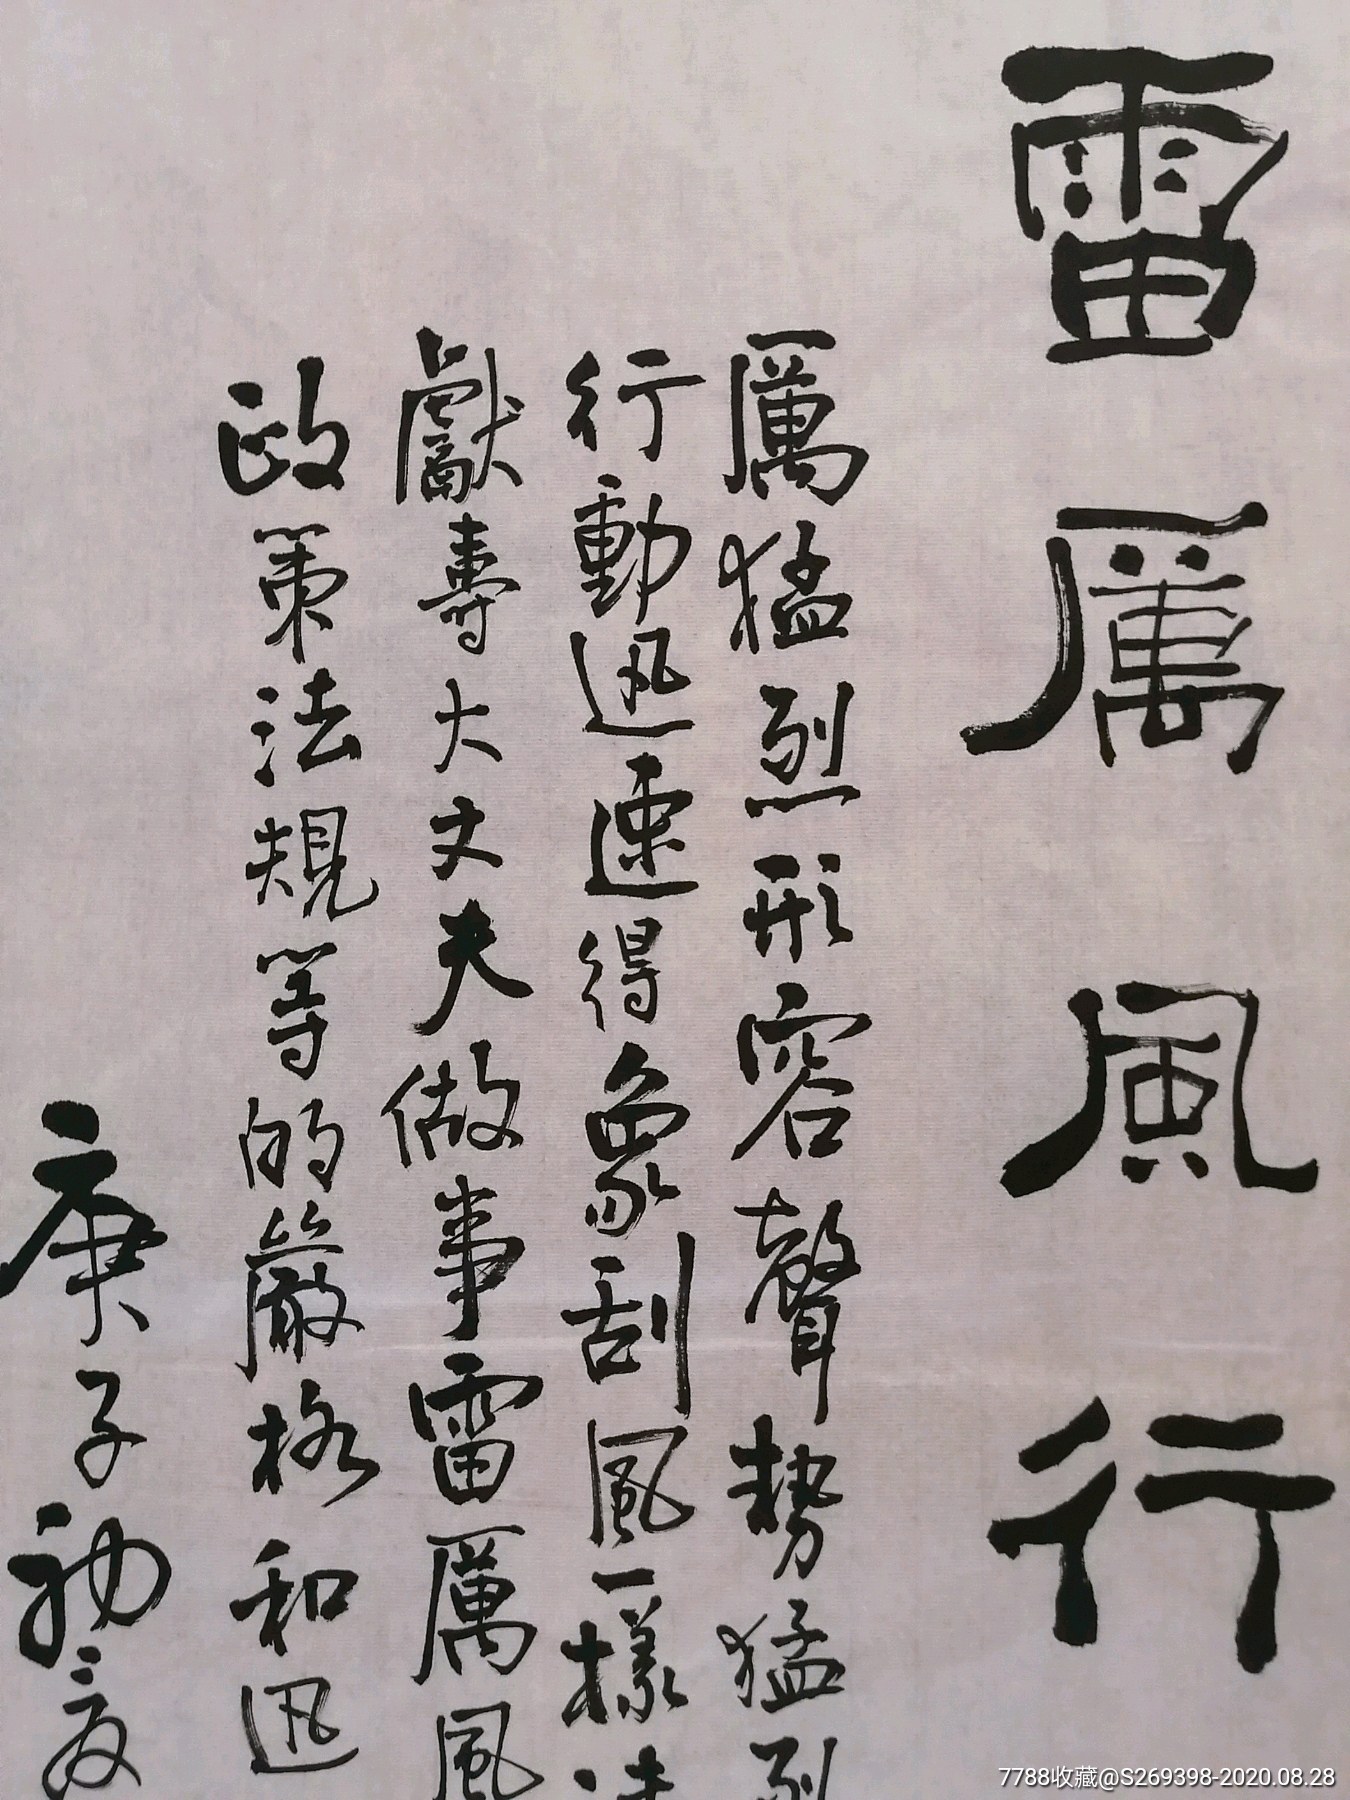 雷厲風行
厲猛烈形容聲勢猛烈
行動迅速得象刮風一樣
獻壽大丈夫做事雷厲風
政策法規等的嚴格和迅
庚子初夏
7788收藏@S269398-2020.08.28